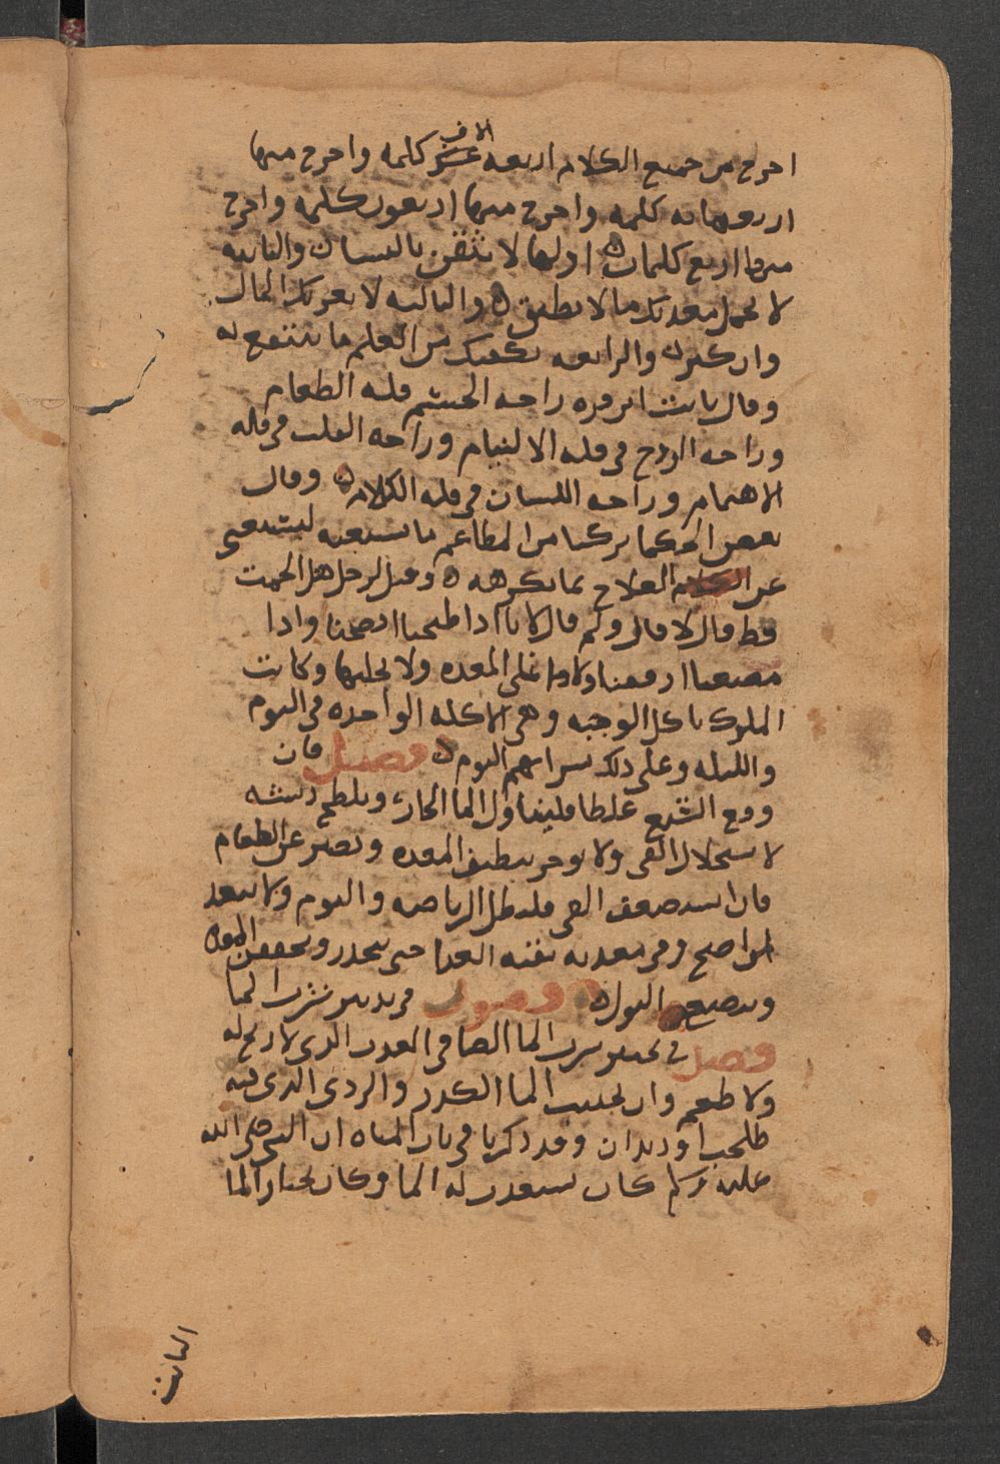 اخرج من جميع الكلام اربعه الاف كلمه واخرج منها
اربعمايه كلمه واخرج منها اربعون كلمه واخرج
منها اربع كلمات اولها لا تثقن بالنسا والثانيه
لا تحمل معدتك ما لا تطيق والثالثه لا يغرنك المال
وان كثر والرابعه يكفيك من العلم ما تنتفع به
وقال ثابت ابن قره راحه الجسم قله الطعام
وراحه الروح في قله الاثام وراحه القلب في قله
الاهتمام وراحه اللسان في قله الكلام وقال
بعض الحكما تركنا من المطاعم ما نستحبه لنستغني
عن العلاج بما نكرهه وقيل لرجل هل اتخمت
قط قال لا قال ولم قال لانا اذا طبخنا انضجنا واذا
مضغنا ارقعنا ولا نملى المعده ولا نخليها وكانت
الملوك تاكل الوجبه وهي الاكله الواحده في اليوم
والليله وعلى ذلك شرابهم اليوم فصل فان
وقع الشبع غلطا فليتناول الما الحار ويلطخ ريشه
لاستجلاب القي ولا يوخر تنظيف المعده ويصبر عن الطعام
فان استصعب القي فليطل الرياضه والنوم ولا يتغد
ان اصبح وفي معدته بقيه الغدا حتى ينحدر ويخفف
وينصبغ البول فصول في تدبير شرب الما
فصل في تخير شرب الما الصافي العذب الذي لا ريح له
ولا طعم وان يجتنب الما الكدر والردي الذي فيه
طحلب او ديدان وقد ذكرنا في باب المياه ان النبي صلى الله
عليه وسلم كان يستعذب له الما وكان يختار الما
البايت